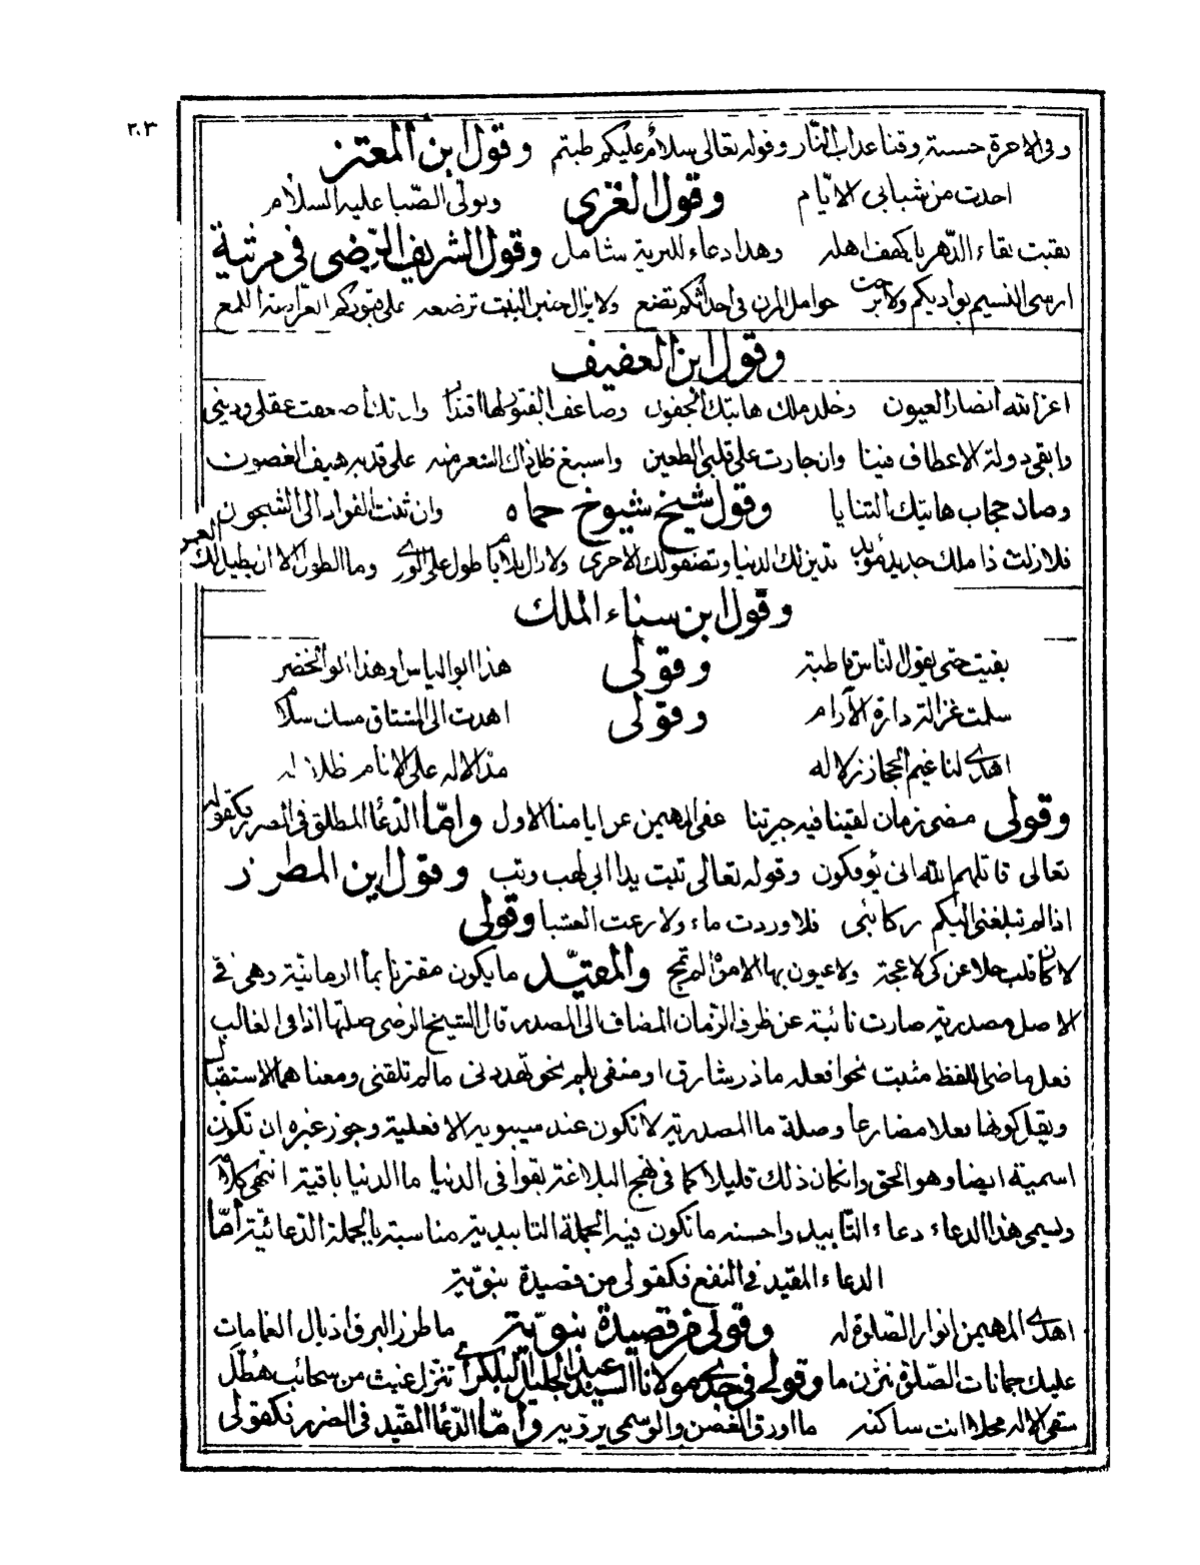 ٢٠٣
وفى الاخرة حسنة وقنا عذاب النار وقوله تعالى سلام عليكم طبتم وقول ابن المعتز
اخذت من شبابى الايّام وقول الغزى وتولّى الصّبا عليه السلام
بقيت بقاء الدّهر يا كهف اهله وهذا دعاء للبرية شامل وقول الشريف الرّضى فى مرثية
ارسى النسيم بواديكم ولا برحت حوامل المزن فى اجداثكم تضع ولا يزال جنين النبت ترضعه على قبوركم العرّاصة اللمع
وقول ابن العفيف
اعز الله انصار العيون وخلد ملك هاتيك الجفون وضاعف بالفتور لها اقتدارا وان تك اضعفت عقلى ودينى
وابقى دولة الاعطاف فينا وان جارت على قلبى الطعين واسبغ ظل ذاك الشعر منه على قد به هيف الغصون
وصان حجاب هاتيك الثنايا وقول شيخ شيوخ حماه وان ثنت الفواد الى الشجون
فلا زلت ذا ملك جديد مؤبد تدين لك الدنيا وتصفو لك الاخرى ولا زال للايام طول على الورى وما الطول الا ان يطيل لك العمر
وقول ابن سناء الملك
بقيت حتى يقول الناس قاطبة وقولى هذا ابو الياس او هذا ابو الخضر
سلمت غزالة دارة الآرام وقولى اهدت الى المشتاق مسك سلام
اهدى لنا غيم الحجاز زلاله مدّ الاله على الانام ظلاله
وقولى مضى زمان لقينا فيه جيرتنا عفى المهيمن عن ايامنا الاول وامّا الدّعا المطلق فى الضرر فكقوله
تعالى قاتلهم الله انى يؤفكون وقوله تعالى تبت يدا ابى لهب وتب وقول ابن المطرز
اذا لم تبلغنى اليكم ركائبى فلا وردت ماء ولا رعت العشبا وقولى
لا كان قلب خلا عن كى لاعجة ولا عيون بها الامواه لم تمج والمقيّد ما يكون مقترنا بما الزمانيّة وهى فى
الاصل مصدرية صارت نائبة عن ظرف الزمان المضاف الى المصدر قال الشيخ الرضى صلتها اذا فى الغالب
فعل ماضى اللفظ مثبت نحو افعله ما ذر شارق او منفى بلم نحو تهددنى ما لم تلقنى ومعناهما الاستقبال
ويقل كونها فعلا مضارعا وصلة ما المصدرية لا تكون عند سيبويه الا فعلية وجوز غيره ان تكون
اسمية ايضا وهو الحق وان كان ذلك قليلا كما فى نهج البلاغة بقوا فى الدنيا ما الدنيا باقية انتهى كلامه
ويسمى هذا الدعاء دعاء التّابيد واحسنه ما تكون فيه الجملة التابيدية مناسبة بالجملة الدّعائيّة امّا
الدعاء المقيد فى النفع فكقولى من قصيدة نبويّة
اهدى المهيمن انوار الصّلوة له وقولى من قصيدة نبويّة ما طرز البرق اذيال الغمامات
عليك جمانات الصّلوة نثرن ما وقولى فى جدى مولانا السيد عبد الجليل البلكرامى تنزل غيث من سحائب هطل
سقى الاله محلا انت ساكنه ما اورق الغصن والوسمى يرويه وامّا الدّعا المقيد فى الضرر فكقولى